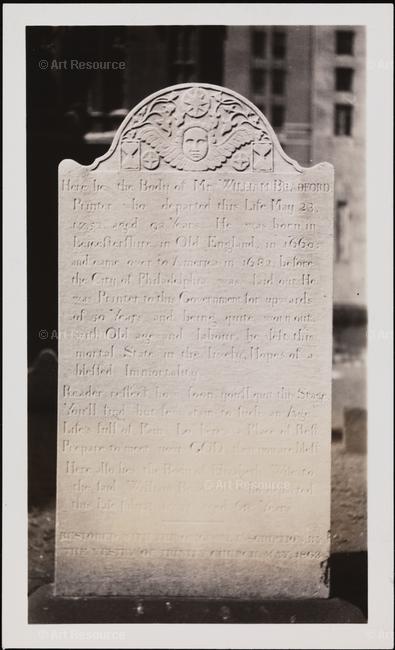 © Art Resource
© Art Resource
Here lie the Body of Mr. WILLIAM BRADFORD
Printer who departed this Life May 23,
1752, aged 92 Years: He was born in
Leicesterſhire, in Old England, in 1660:
and came over to America in 1682, before
the City of Philadelphia was laid out: He
was Printer to this Government for upwards
of 50 Years and being quite worn out
with Old age and labour, he left this
mortal State in the lively Hopes of a
bleſſed Immortality.
Reader reflect how ſoon you'll quit this Stage
You'll find but few atain to ſuch an Age
Life's full of Pain. Lo here's a Place of Reſt
Prepare to meet your GOD, then you are bleſt
Here alſo lies the Body of Elizabeth Wife to
the ſaid William
this Life 68 Years
RESTORED INSCRIPTION, BY
THE VESTRY OF TRINITY CHURCH, MAY, 1863
© Art Resource
© Art Resource
© Art Resource
© Art Resource
© Art Resource